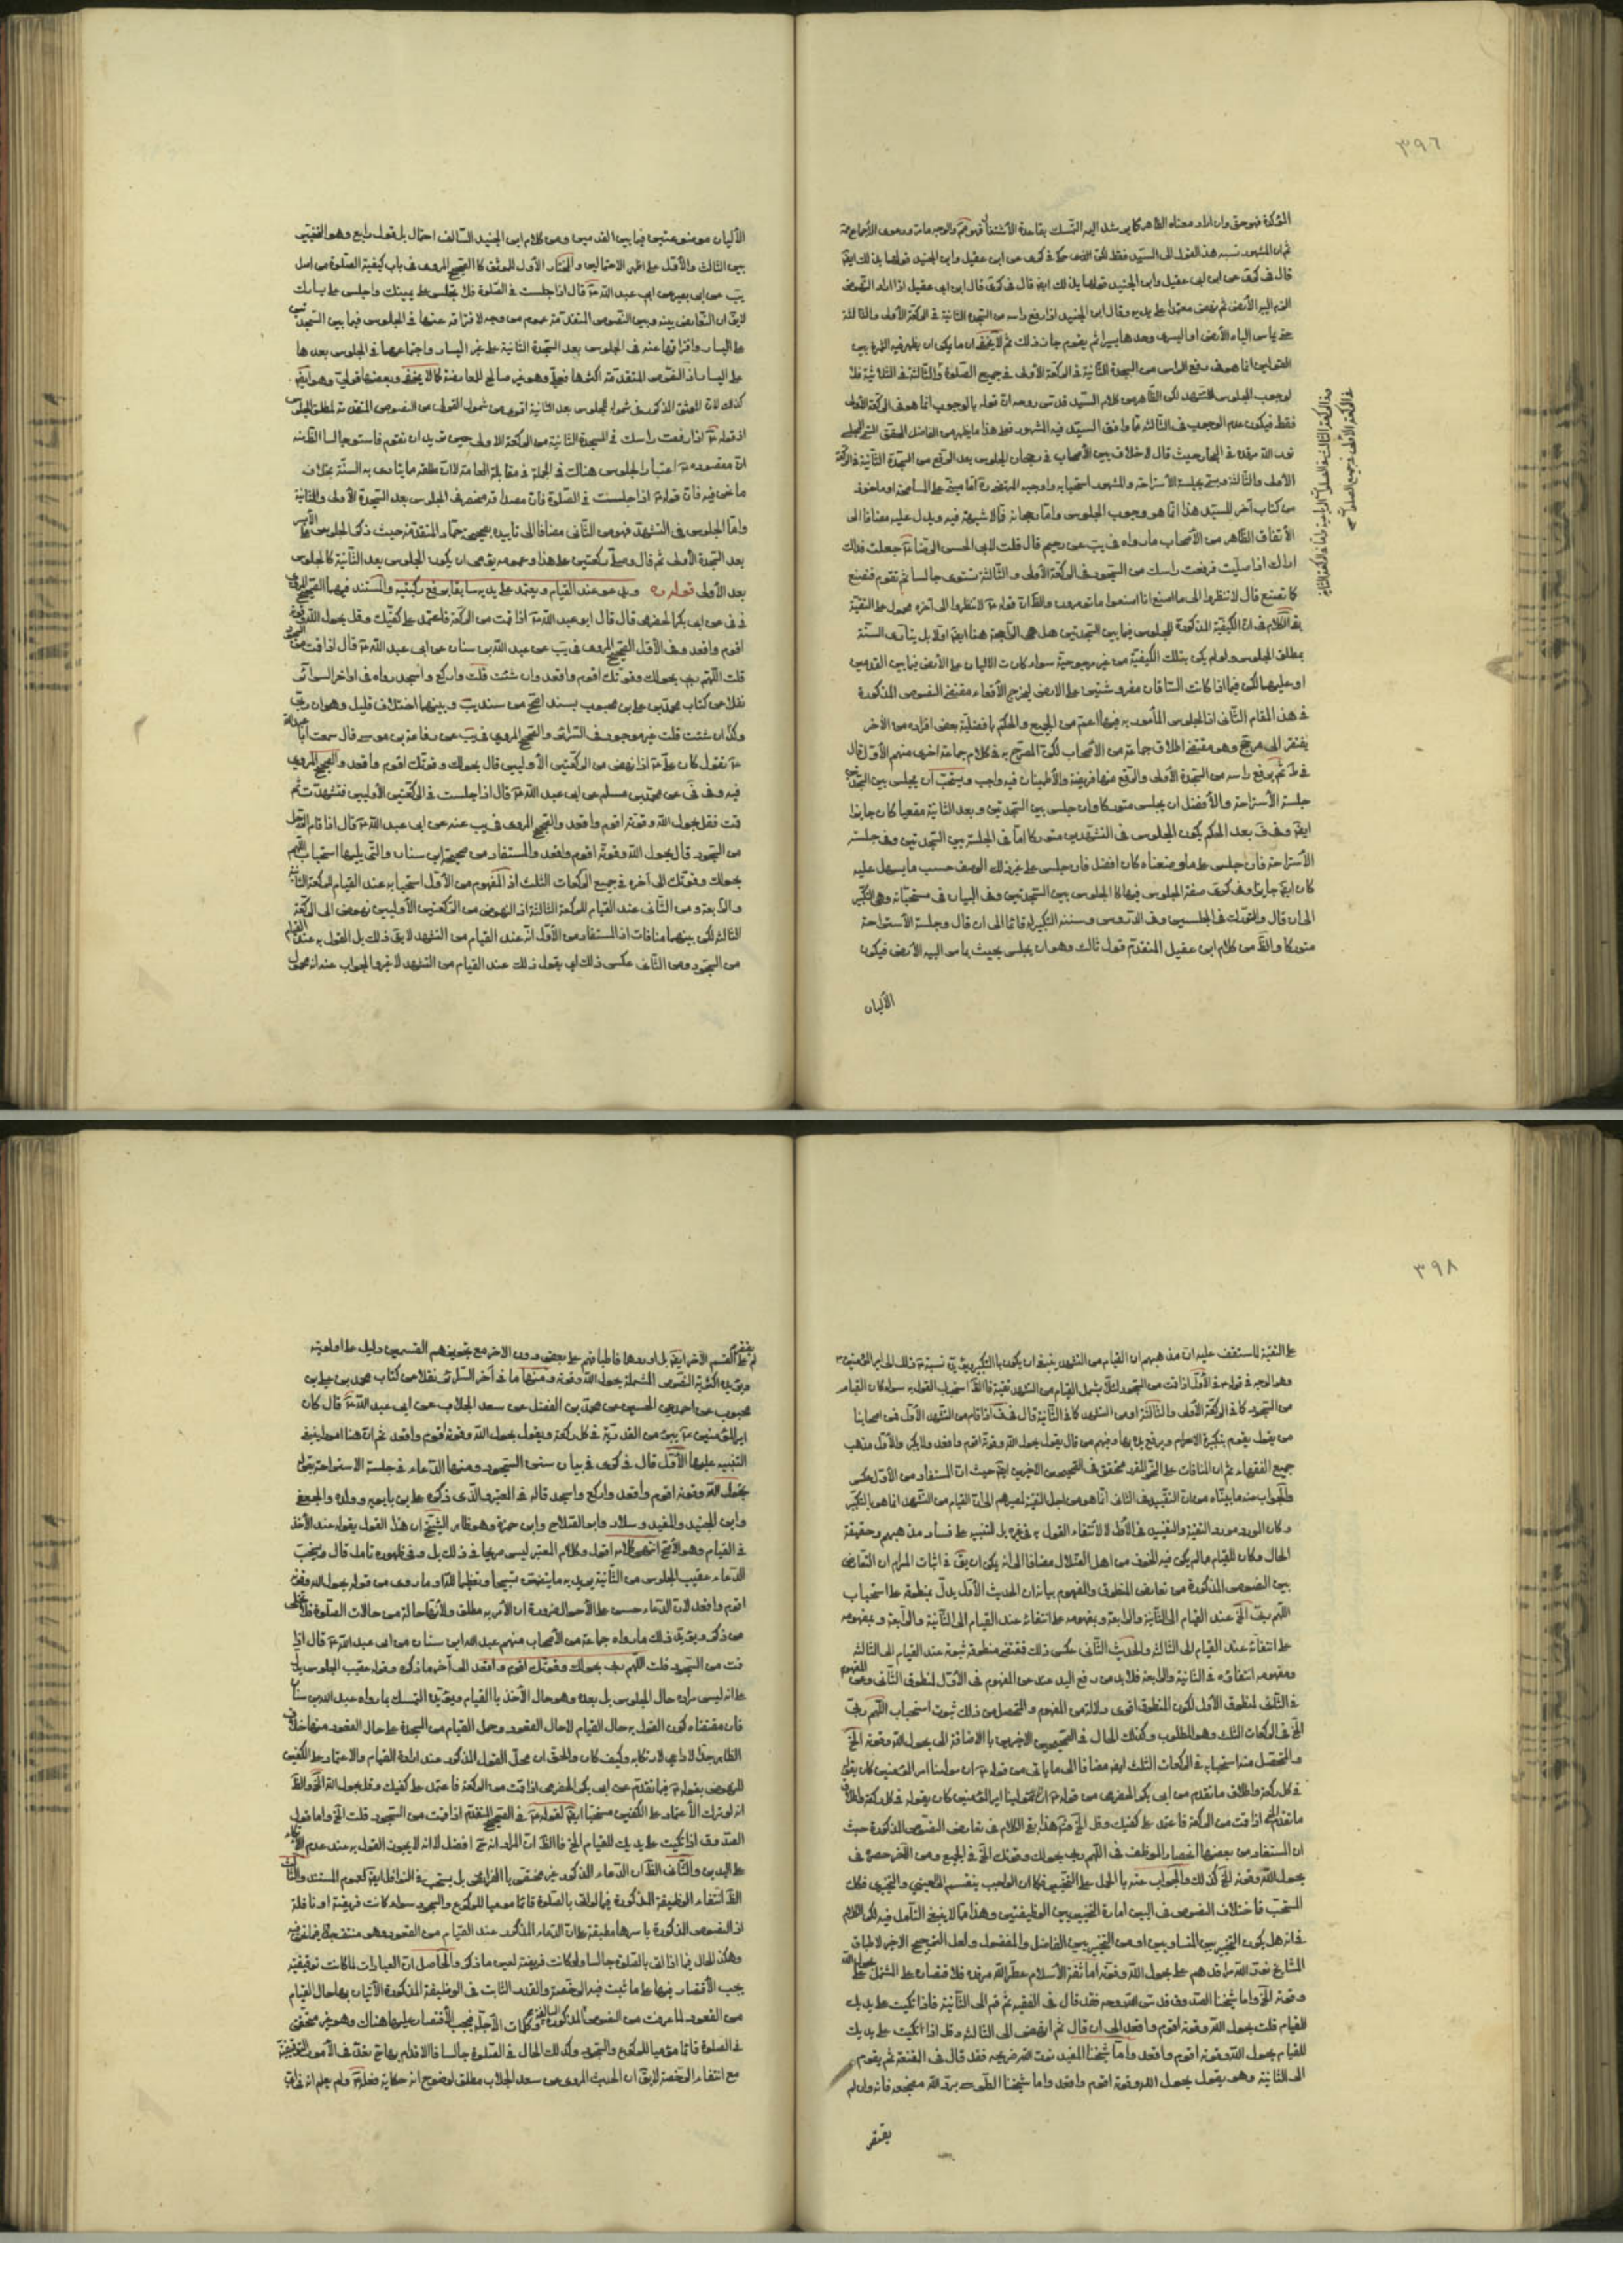 ٣٩٦
المؤكدة فهو حق وان اراد معناه الظاهر كما يرشد اليه التمسك بقاعدة الأشتغال فهو والوجه ما مر ودعوى الأجماع
ثم ان المشهور نسبه هذا القول الى السيد فقط لكن الذى حكاه فى كرى عن ابى عقيل وابن الجنيد قولهما بذلك ايضا
قال فى كرى عن ابن ابى عقيل وابن الجنيد قولهما بذلك ايضا قال فى كرى قال ابن ابى عقيل اذا اراد النهوض
الزم اليه الأرض ثم نهض معتمدا على يديه وقال ابن الجنيد اذا رفع راسه من السجدة الثانية فى الركعة الأولى والثالثة
حتى يماس الياه الأرض او اليسرى وحدها يسيرا ثم يقوم جاز ذلك ثم لا يخفى ان ما يمكن ان يظهر فيه الثمرة بين
القولين انما هو فى رفع الراس من السجدة الثانية فى الركعة الأولى فى جميع الصلوة والثالثة فى الثلاثية فلا
لوجوب الجلوس للتشهد لكن الظاهر من كلام السيد قدس روحه ان قوله بالوجوب انما هو فى الركعة الأولى
فقط فيكون عدم الوجوب فى الثالثة مما وافق السيد فيه المشهور فقط هذا ما يظهر من الفاضل المحقق
نور الله مرقده فى البحار حيث قال لا خلاف بين الأصحاب فى رجحان الجلوس بعد الرفع من السجدة الثانية فى الركعة
الأولى والثالثة ويسمى بجلسة الأستراحة والمشهور استحبابه واوجبه المرتضى ره اما مبنى على المسامحة او ماخوذ
من كتاب آخر للسيد هذا انما هو وجوب الجلوس واما رجحانه فما لا شبهة فيه ويدل عليه مضافا الى
الأتفاق الظاهر من الأصحاب ما رواه فى يب عن رحيم قال قلت لابى الحسن الرضا ع جعلت فداك
اراك اذا صليت فرفعت راسك من السجود فى الركعة الأولى والثالثة تستوى جالسا ثم تقوم فنصنع
كما تصنع قال لا تنظروا الى ما اصنع انا اصنعوا ما تومرون والظ ان قوله ع لا تنظروا الى آخره محمول على التقية
بقى الكلام فى ان الكيفية المذكورة للجلوس فيما بين السجدتين هل هى الراجحة هنا ايضا او لا بل يتأدى السنة
بمطلق الجلوس ولو لم يكن بتلك الكيفية من غير مرجوحية سواء كانت الاليان على الأرض فيما بين القدمين
او عليهما لكن فيما اذا كانت الساقان مفروشتين على الارض ليخرج الأقعاء مقتضى النصوص المذكورة
فى هذا المقام الثانى اذ الجلوس المأمور به فيها اعم من الجميع والحكم بافضلية بعض افراده من الآخر
يفتقر الى مرجح وهو مقتضى اطلاق جماعة من الأصحاب لكن المصرح به فى كلام جماعة اخرى منهم الأول قال
فى ط ثم يرفع راسه من السجدة الأولى والرفع منها فريضة والأطمينان فيه واجب ويستحب ان يجلس بين السجدتين
جلسة الأستراحة والأفضل ان يجلس متوركا وان جلس بين السجدتين وبعد الثانية مقعيا كان جايزا
ايضا وفى ف بعد الحكم بكون الجلوس فى التشهدين متوركا اما فى الجلسة بين السجدتين وفى جلسة
الأستراحة فان جلس على ما وصفناه كان افضل فان جلس على غير ذلك الوصف حسب ما يسهل عليه
كان ايضا جايزا وفى كرى صفة الجلوس فيها كالجلوس بين السجدتين وفى البيان فى مستحباته وهى التكبير
الى ان قال والتورك فى الجلستين وفى الدروس وسننه التكبير له قائما الى ان قال وجلسة الأستراحة
متوركا والظ من كلام ابن عقيل المتقدم قول ثالث وهو ان يجلس بحيث يماس اليه الأرض فيكون
الأليان
الأليان موضوعتين فيما بين القدمين ومن كلام ابن الجنيد السالف احتمال بل قول رابع وهو التخيير
بين الثالث والأول على اظهر الاحتمالين والمختار الأول للموثق كالصحيح المروى فى باب كيفية الصلوة من اصل
يب عن ابى بصير عن ابى عبد الله ع قال اذا جلست فى الصلوة فلا تجلس على يمينك واجلس على يسارك
لا يق ان التعارض بينه وبين النصوص المتقدمة عموم من وجه لافتراقه عنها فى الجلوس فيما بين السجدتين
على اليسار وافتراقها عنه فى الجلوس بعد السجدة الثانية على غير اليسار واجتماعهما فى الجلوس بعدها
على اليسار لان النصوص المتقدمة اكثرها فعل وهو غير صالح للمعارضة كما لا يخفى وبعضها قولى وهو ايضا
كذلك لان الموثق المذكور فى شموله للجلوس بعد الثانية اقوى من شمول القولى من النصوص المتقدمة لمطلق الجلوس
اذ قوله ع اذا رفعت راسك فى السجدة الثانية من الركعة الاولى حين تريد ان تقوم فاستو جالسا الظ منه
ان مقصوده ع اعتبار الجلوس هناك فى الجملة فى مقابلة العامة لا ان مطلقه مما يتادى به السنة بخلاف
ما نحن فيه فان قوله ع اذا جلست فى الصلوة فان مصداقه منحصر فى الجلوس بعد السجدة الأولى والثانية
واما الجلوس فى التشهد فهو من الثانى مضافا الى تاييده بصحيح حماد المتقدمة حيث ذكر الجلوس على الأيسر
بعد السجدة الأولى ثم قال وصلى ركعتين على هذا وعمومه يقتضى ان يكون الجلوس بعد الثانية كالجلوس
بعد الأولى قوله ره ويدعو عند القيام ويعتمد على يديه سابقا برفع ركبتيه والمستند فيهما الصحيح المروى
فى فى عن ابى بكر الحضرمى قال قال ابو عبد الله ع اذا قمت من الركعة فاعتمد على كفيك وقل بحول الله وقوته
اقوم واقعد وفى الأول الصحيح المروى فى يب عن عبد الله بن سنان عن ابى عبد الله ع قال اذا قمت من السجود
قلت اللهم ربى بحولك وقوتك اقوم واقعد وان شئت قلت واركع واسجد رواه فى اواخر السرائر
نقلا من كتاب محمد بن على بن محبوب بسند اصح من سند يب وبينهما اختلاف قليل وهو ان ربى
وكذا ان شئت قلت غير موجود فى السرائر والصحيح المروى فى يب عن رفاعة بن موسى قال سمعت ابا عبد الله
ع يقول كان على ع اذا نهض من الركعتين الأوليين قال بحولك وقوتك اقوم واقعد والصحيح المروى
فيه وفى فى عن محمد بن مسلم عن ابى عبد الله ع قال اذا جلست فى الركعتين الأوليين فتشهدت ثم
قمت فقل بحول الله وقوته اقوم واقعد والصحيح المروى فى يب عنه عن ابى عبد الله ع قال اذا قام الرجل
من السجود قال بحول الله وقوته اقوم واقعد والمستفاد من صحيحة ابن سنان والتى يليها استحباب اللهم
بحولك وقوتك الى آخره فى جميع الركعات الثلث اذ المفهوم من الأول استحبابه عند القيام للركعة الثانية
والرابعة ومن الثانى عند القيام للركعة الثالثة اذ النهوض من الركعتين الأوليين نهوض الى الركعة
الثالثة لكن بينهما منافات اذ المستفاد من الأول انه عند القيام من التشهد لا يق ذلك بل القول به عند القيام
من السجود ومن الثانى عكس ذلك اى يقول ذلك عند القيام من التشهد لا غير والجواب عنه انه محمول
٣٩٨
على التقية لما ستقف عليه ان مذهبهم ان القيام من التشهد ينبغى ان يكون بالتكبير ويؤيده نسبته ع ذلك الى امير المؤمنين ع
وهو الوجه فى قوله ع فى الأول اذا قمت من السجود لئلا يشمل القيام من التشهد تقية فالظ استحباب القول به سواء كان القيام
من السجود كما فى الركعة الأولى والثالثة او من التشهد كما فى الثانية قال فى ف اذا قام من التشهد الأول فمن اصحابنا
من يقول يقوم بتكبيرة الاحرام ويرفع يديه بها ومنهم من قال يقول بحول الله وقوته اقوم واقعد ولا يكبر والأول مذهب
جميع الفقهاء ثم ان المنافات على النحو المقرر متحقق فى الصحيحين الاخيرين ايضا حيث ان المستفاد من الأول عكس
والجواب عنه ما بيناه من ان التقييد فى الثانى انما هو من اجل التقية لمصيرهم الى ان القيام من التشهد انما هو بالتكبير
وكان الورد مورد التقية والتقييد فى الأول لا لأنتفاء القول به فى غيره بل للتنبيه على فساد مذهبهم وحقيقة
الحال وكان للقيام ما لم يكن فيه الخوف من اهل الضلال مضافا الى انه يمكن ان يق فى اثبات المرام ان التعارض
بين النصوص المذكورة من تعارض المنطوق والمفهوم بيانه ان الحديث الأول يدل بمنطوقه على استحباب
اللهم ربى الخ عند القيام الى الثانية والرابعة وبمفهومه على انتفائه عند القيام الى الثانية والرابعة وبمفهومه
على انتفائه عند القيام الى الثالثة والحديث الثانى عكس ذلك فمقتضى منطوقه ثبوته عند القيام الى الثالثة
ومفهومه انتفاؤه فى الثانية والرابعة فلا بد من رفع اليد عنه من المفهوم فى الأول لمنطوق الثانى ومن المفهوم
فى الثانى لمنطوق الأول لكون المنطوق اقوى دلالة من المفهوم والمتحصل من ذلك ثبوت استحباب اللهم ربى
الخ فى الركعات الثلث وهو المطلوب وكذلك الحال فى الصحيحين الاخيرين بالاضافة الى بحول الله وقوته الخ
والمتحصل منه استحبابه فى الركعات الثلث ايضا مضافا الى ما ياتى من قوله ع ان مولينا امير المؤمنين كان يقول
فى كل ركعة واطلاق ما تقدم من ابى بكر الحضرمى من قوله ع
ما تقدم اذا قمت من الركعة فاعتمد على كفيك وقل الخ ثم هذا بقى الكلام فى تعارض النصوص المذكورة حيث
ان المستفاد من بعضها انحصار الموظف فى اللهم ربى بحولك وقوتك الخ فى الجميع ومن الآخر حصره فى
بحول الله وقوته الخ كذلك والجواب عنه بالحمل على التخيير فكما ان الواجب ينقسم الى العينى والتخييرى فكذا
المستحب فاختلاف النصوص فى البين امارة التخيير بين الوظيفتين وهذا مما لا ينبغى التأمل فيه لكن الكلام
فى انه هل يكون التخيير بين المتساويين او من التخيير بين الفاضل والمفضول ولعل الترجيح الاخير لاطباق
المشايخ نور الله مراقدهم على بحول الله وقوته اما ثقة الأسلام عطر الله مرقده فلاقتصاره على المشتمل على بحول الله
وقوته الخ واما شيخنا الصدوق قدس الله روحه فقد قال فى الفقيه ثم قم الى الثانية فاذا تكيت على يديك
للقيام قلت بحول الله وقوته اقوم واقعد الى ان قال ثم انهض الى الثالثة وقل اذا اتكيت على يديك
للقيام بحول الله وقوته اقوم واقعد واما شيخنا المفيد نور الله ضريحه فقد قال فى المقنعة ثم يقوم
الى الثانية وهو يقول بحول الله وقوته اقوم واقعد واما شيخنا الطوسى برد الله مضجعه فانه وان لم
يقتصر
يقتصر على القسم الآخر ايضا بل اوردهما فاطباقهم على بعض دون الآخر مع تجويزهم القسمين دليل على اولويته
ويؤيده اكثرية النصوص المشتملة بحول الله وقوته ومنها ما فى آخر السرائر نقلا من كتاب محمد بن على بن
محبوب عن احمد عن الحسين عن محمد بن الفضل عن سعد الجلاب عن ابى عبد الله ع قال كان
امير المؤمنين ع يبرئ من القدرية فى كل ركعة ويقول بحول الله وقوته اقوم واقعد ثم ان هنا امورا ينبغى
التنبيه عليها الأول قال فى كرى فى بيان سنن السجود ومنها الدعاء فى جلسة الاستراحة بقوله
بحول الله وقوته اقوم واقعد واركع واسجد قاله فى المعتبر والذى ذكره على بن بابويه وولده والجعفى
وابن الجنيد والمفيد وسلار وابو الصلاح وابن حمزة وهو ظاهر الشيخ ان هذا القول يقوله عند الأخذ
فى القيام وهو الأصح انتهى كلامه اقول وكلام المعتبر ليس صريحا فى ذلك بل وفى ظهوره تامل قال ويستحب
الدعاء عقيب الجلوس من الثانية يريد به ما يتضمن تسبيحا وتعظيما لله او ما روى من قوله بحول الله وقوته
اقوم واقعد لان الدعاء حسن على الأحوال ضرورة ان الأمر به مطلق ولأنها حالة من حالات الصلوة فلا تخلى
من ذكر ويؤيد ذلك ما رواه جماعة من الأصحاب منهم عبد الله ابن سنان عن ابى عبد الله ع قال اذا
قمت من السجود قلت اللهم ربى بحولك وقوتك اقوم واقعد الى آخر ما ذكره وقوله عقيب الجلوس يدل
على انه ليس مراده حال الجلوس بل بعده وهو حال الأخذ بالقيام ويؤيده التمسك بما رواه عبد الله بن سنان
فان مقتضاه كون القول به حال القيام لا حال القعود وحمل القيام من السجدة على حال القعود منها خلاف
الظاهر جدا لا داعى لارتكابه وكيف كان والحق ان محل القول المذكور عند ارادة القيام والاعتماد على الكفين
للنهوض بقوله ع فيما تقدم عن ابى بكر الحضرمى اذا قمت من الركعة فاعتمد على كفيك وقل بحول الله الخ والظ
انه لو ترك الأعتماد على الكفين مستحبا ايضا لقوله ع فى الصحيح المتقدم اذا قمت من السجود قلت الخ واما قول
الصدوق اذا تكيت على يديك للقيام الخ فالظ ان المراد انه ح افضل لا انه لا يجوز القول به عند عدم الأتكاء
على اليدين والثانى الظ ان الدعاء المذكور غير مختص بالفرائض بل يستحب فى النوافل ايضا لعموم المستند والثالث
الظ انتفاء الوظيفة المذكورة فيما لو اتى بالصلوة قائما موميا للركوع والسجود سواء كانت فريضة او نافلة
اذ النصوص المذكورة باسرها مطبقة على ان الدعاء المذكور عند القيام من القعود وهو منتف هنا فيما نحن فيه
وهكذا الحال فيما اذا اتى بالصلوة جالسا ولو كانت فريضة لعين ما ذكر والحاصل ان العبارات لما كانت توقيفية
يجب الأقتصار فيها على ما ثبت فيه الرخصة والقدر الثابت فى الوظيفة المذكورة الأتيان بها حال القيام
من القعود لما عرفت من النصوص المذكورة وكلمات الأجلة فيجب الأقتصار عليها هناك وهو غير متحقق
فى الصلوة قائما موميا للركوع والسجود وكذلك الحال فى الصلوة جالسا فالاقدام بها ح تعد فى الأمور التوقيفية
مع انتفاء الرخصة لا يق ان الحديث المروى عن سعد الجلاب مطلق لوضوح انه حكاية فعله ع ولم يعلم انه فى اية